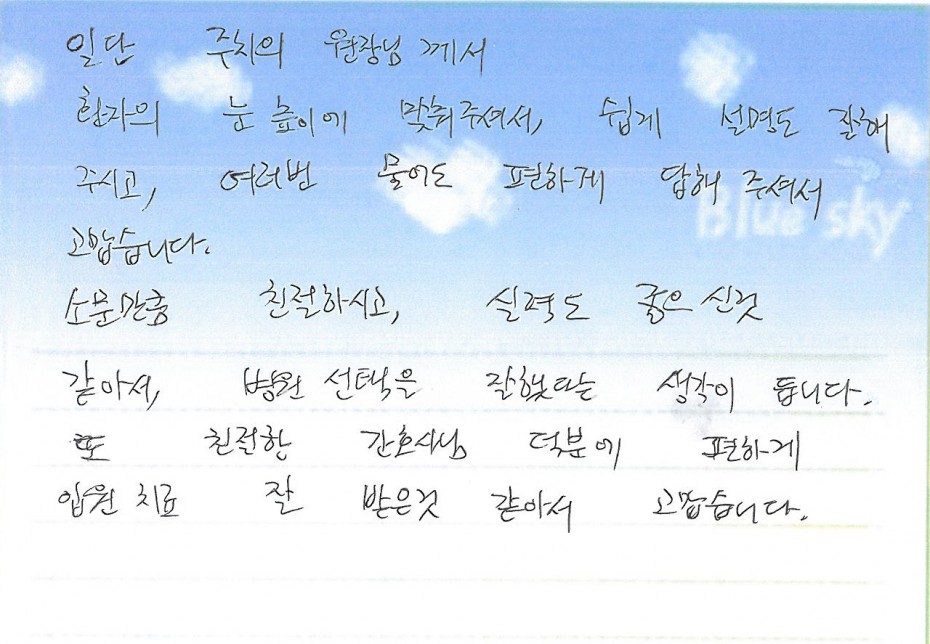 일단 주치의 원장님 께서
환자의 눈 높이에 맞춰주셔서, 쉽게 설명도 잘해
주시고, 여러번 물어도 편하게 답해 주셔서
Blue sky
고맙습니다.
소문만큼 친절하시고, 실력도 좋으신것
같아서, 병원 선택은 잘했다는 생각이 듭니다.
또 친절한 간호사님 덕분에 편하게
입원 치료 잘 받은것 같아서 고맙습니다.